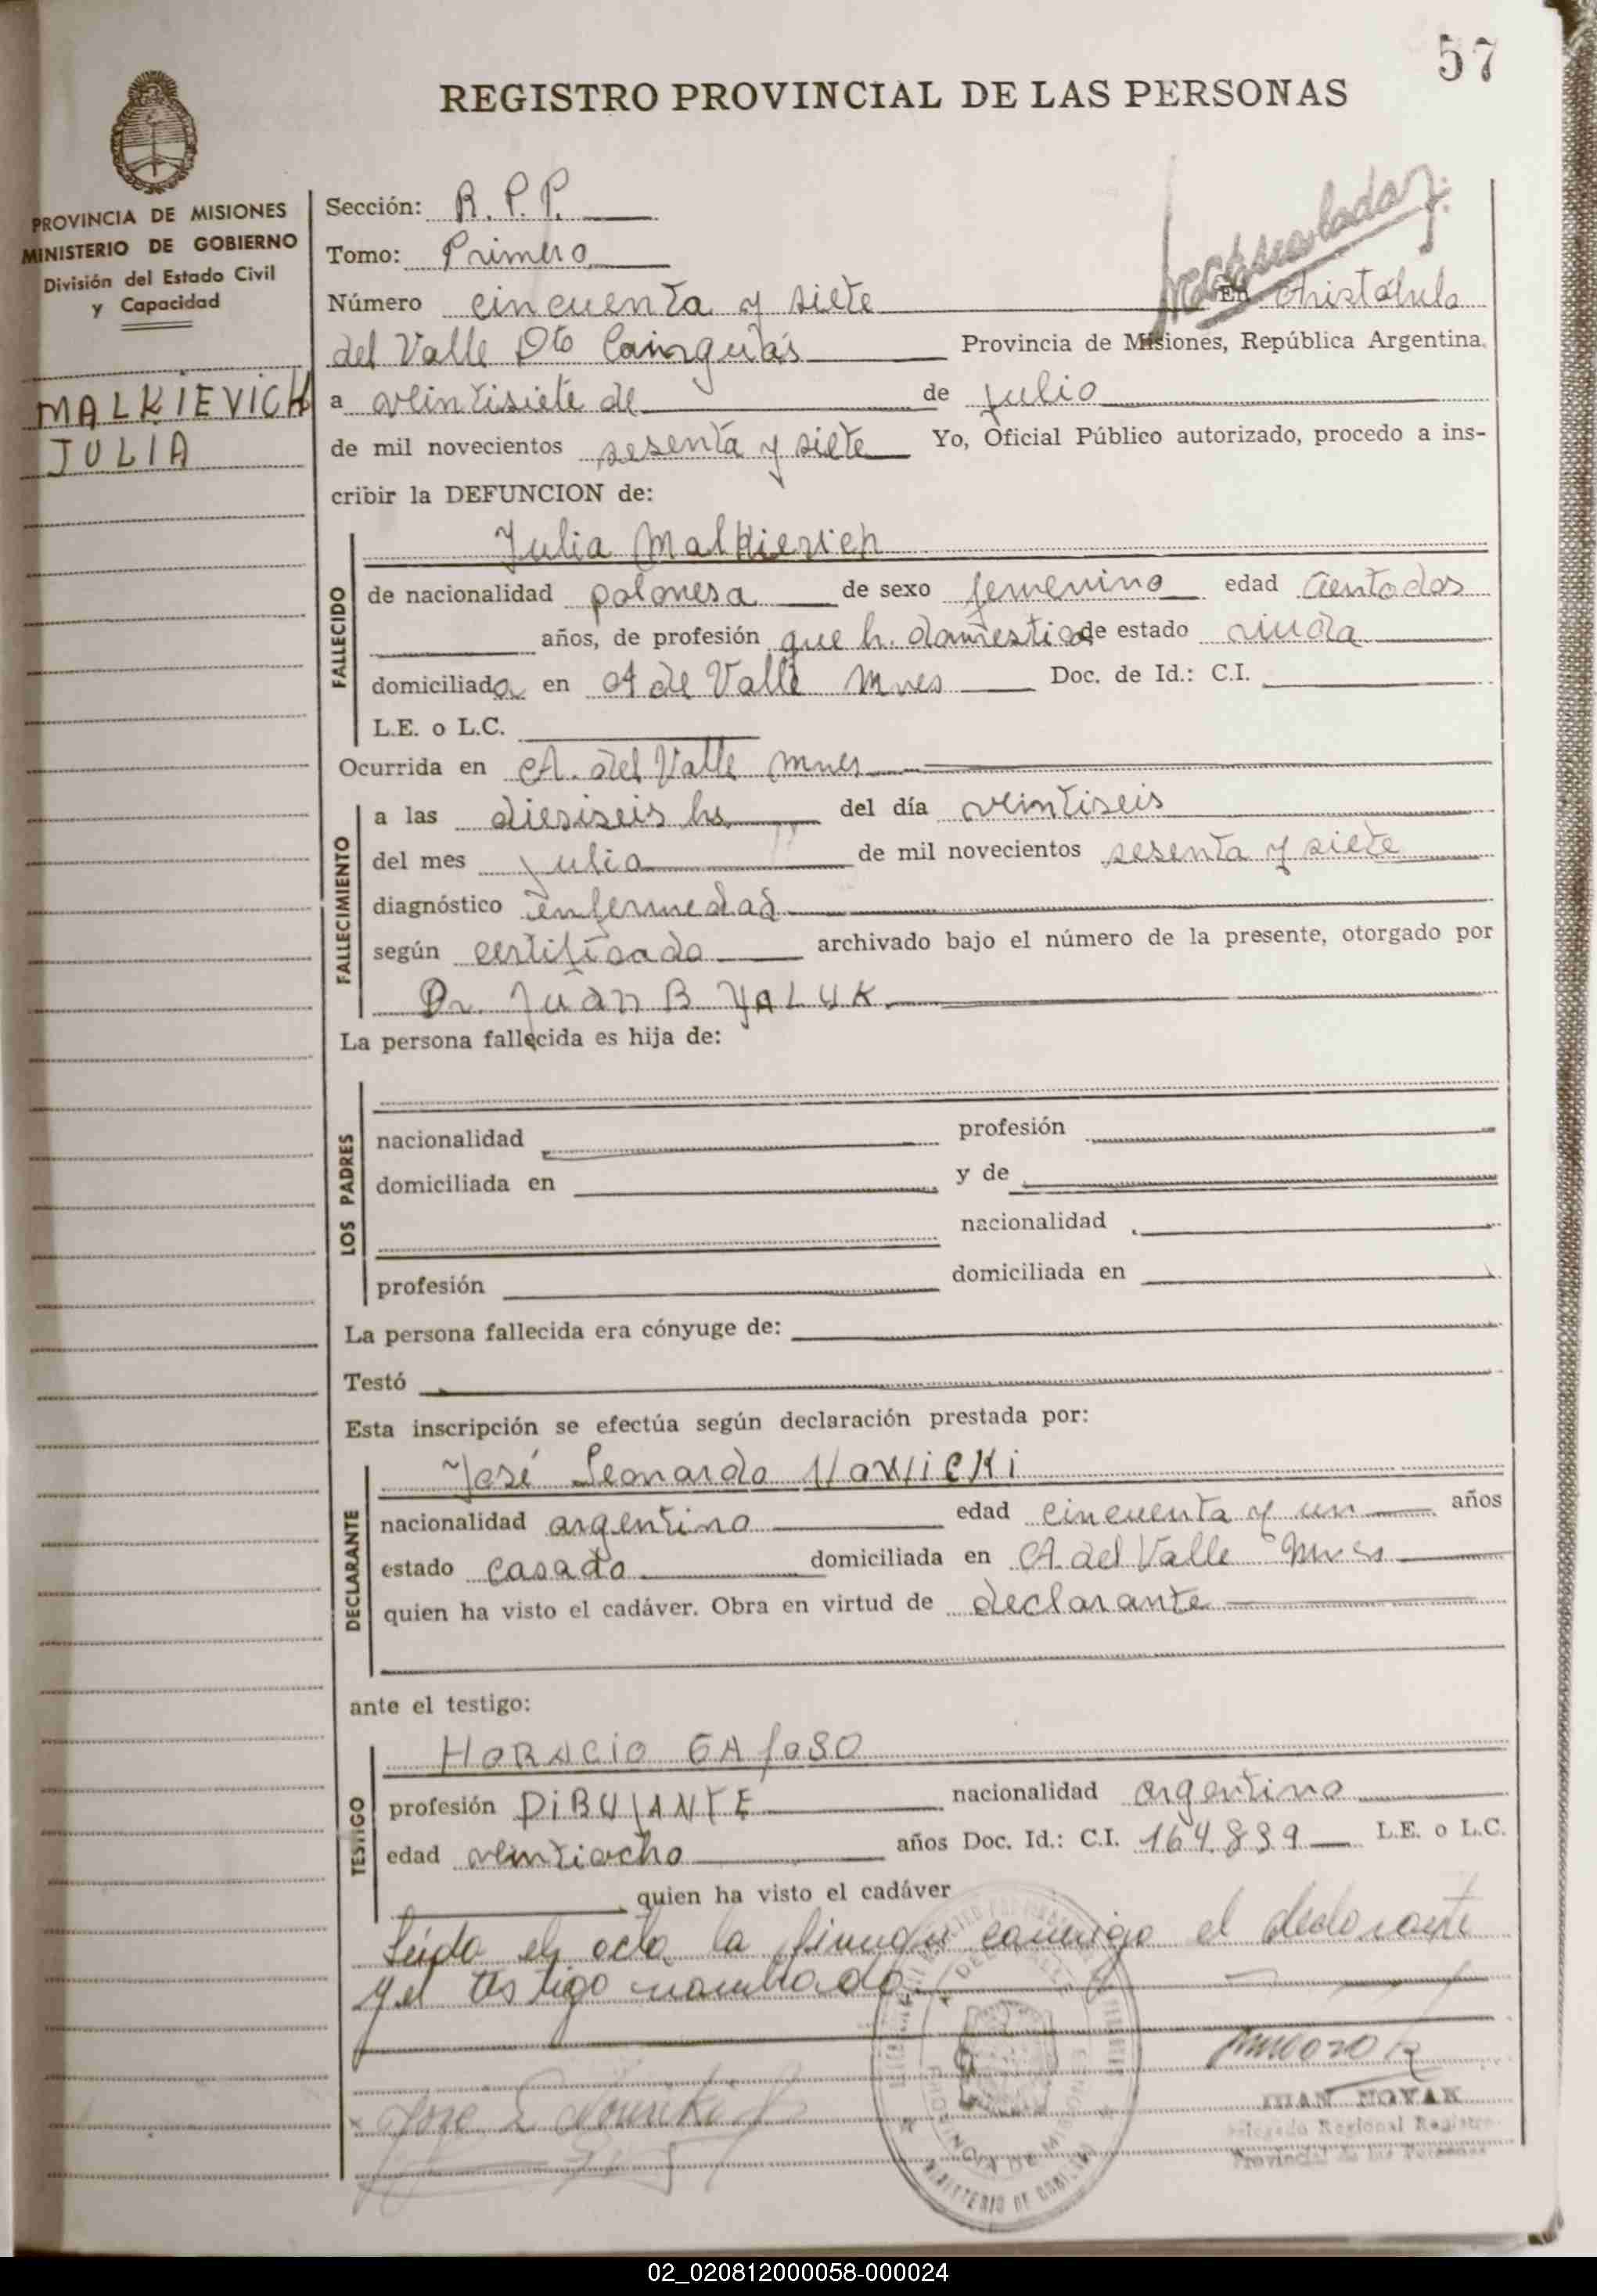 57
REGISTRO PROVINCIAL DE LAS PERSONAS
PROVINCIA DE MISIONES
MINISTERIO DE GOBIERNO
División del Estado Civil
y Capacidad
MALKIEVICH
JULIA
Sección: R.P.P.
Tomo: Primero
Número cincuenta y siete En Aristóbulo
del Valle Dto Cainguás Provincia de Misiones, República Argentina,
a veintisiete de de julio
de mil novecientos sesenta y siete Yo, Oficial Público autorizado, procedo a ins-
cribir la DEFUNCION de:
FALLECIDO
Julia Malkievich
de nacionalidad polonesa de sexo femenino edad ciento dos
años, de profesión que h. domestico de estado viuda
domiciliada en A de Valle Mnes Doc. de Id.: C.I.
L.E. o L.C.
Ocurrida en A. del Valle Mnes
FALLECIMIENTO
a las diesiseis hs del día veintiseis
del mes julio de mil novecientos sesenta y siete
diagnóstico enfermedad
según certificado archivado bajo el número de la presente, otorgado por
Dr. Juan B YALUK
La persona fallecida es hija de:
LOS PADRES
nacionalidad profesión
domiciliada en y de
nacionalidad
profesión domiciliada en
La persona fallecida era cónyuge de:
Testó
Esta inscripción se efectúa según declaración prestada por:
DECLARANTE
José Leonardo Nowicki
nacionalidad argentino edad cincuenta y un años
estado casado domiciliada en A. del Valle Mnes
quien ha visto el cadáver. Obra en virtud de declarante
ante el testigo:
TESTIGO
HORACIO
profesión DIBUJANTE nacionalidad argentino
edad veintiocho años Doc. Id.: C.I. 164.839 L.E. o L.C.
quien ha visto el cadáver
Leída el acta la firman conmigo el declarante
y el testigo nombrado.
JUAN NOVAK
Delegado Regional Registro
Provincial de las Personas
PROVINCIA DE MISIONES
MINISTERIO DE GOBIERNO
02_020812000058-000024